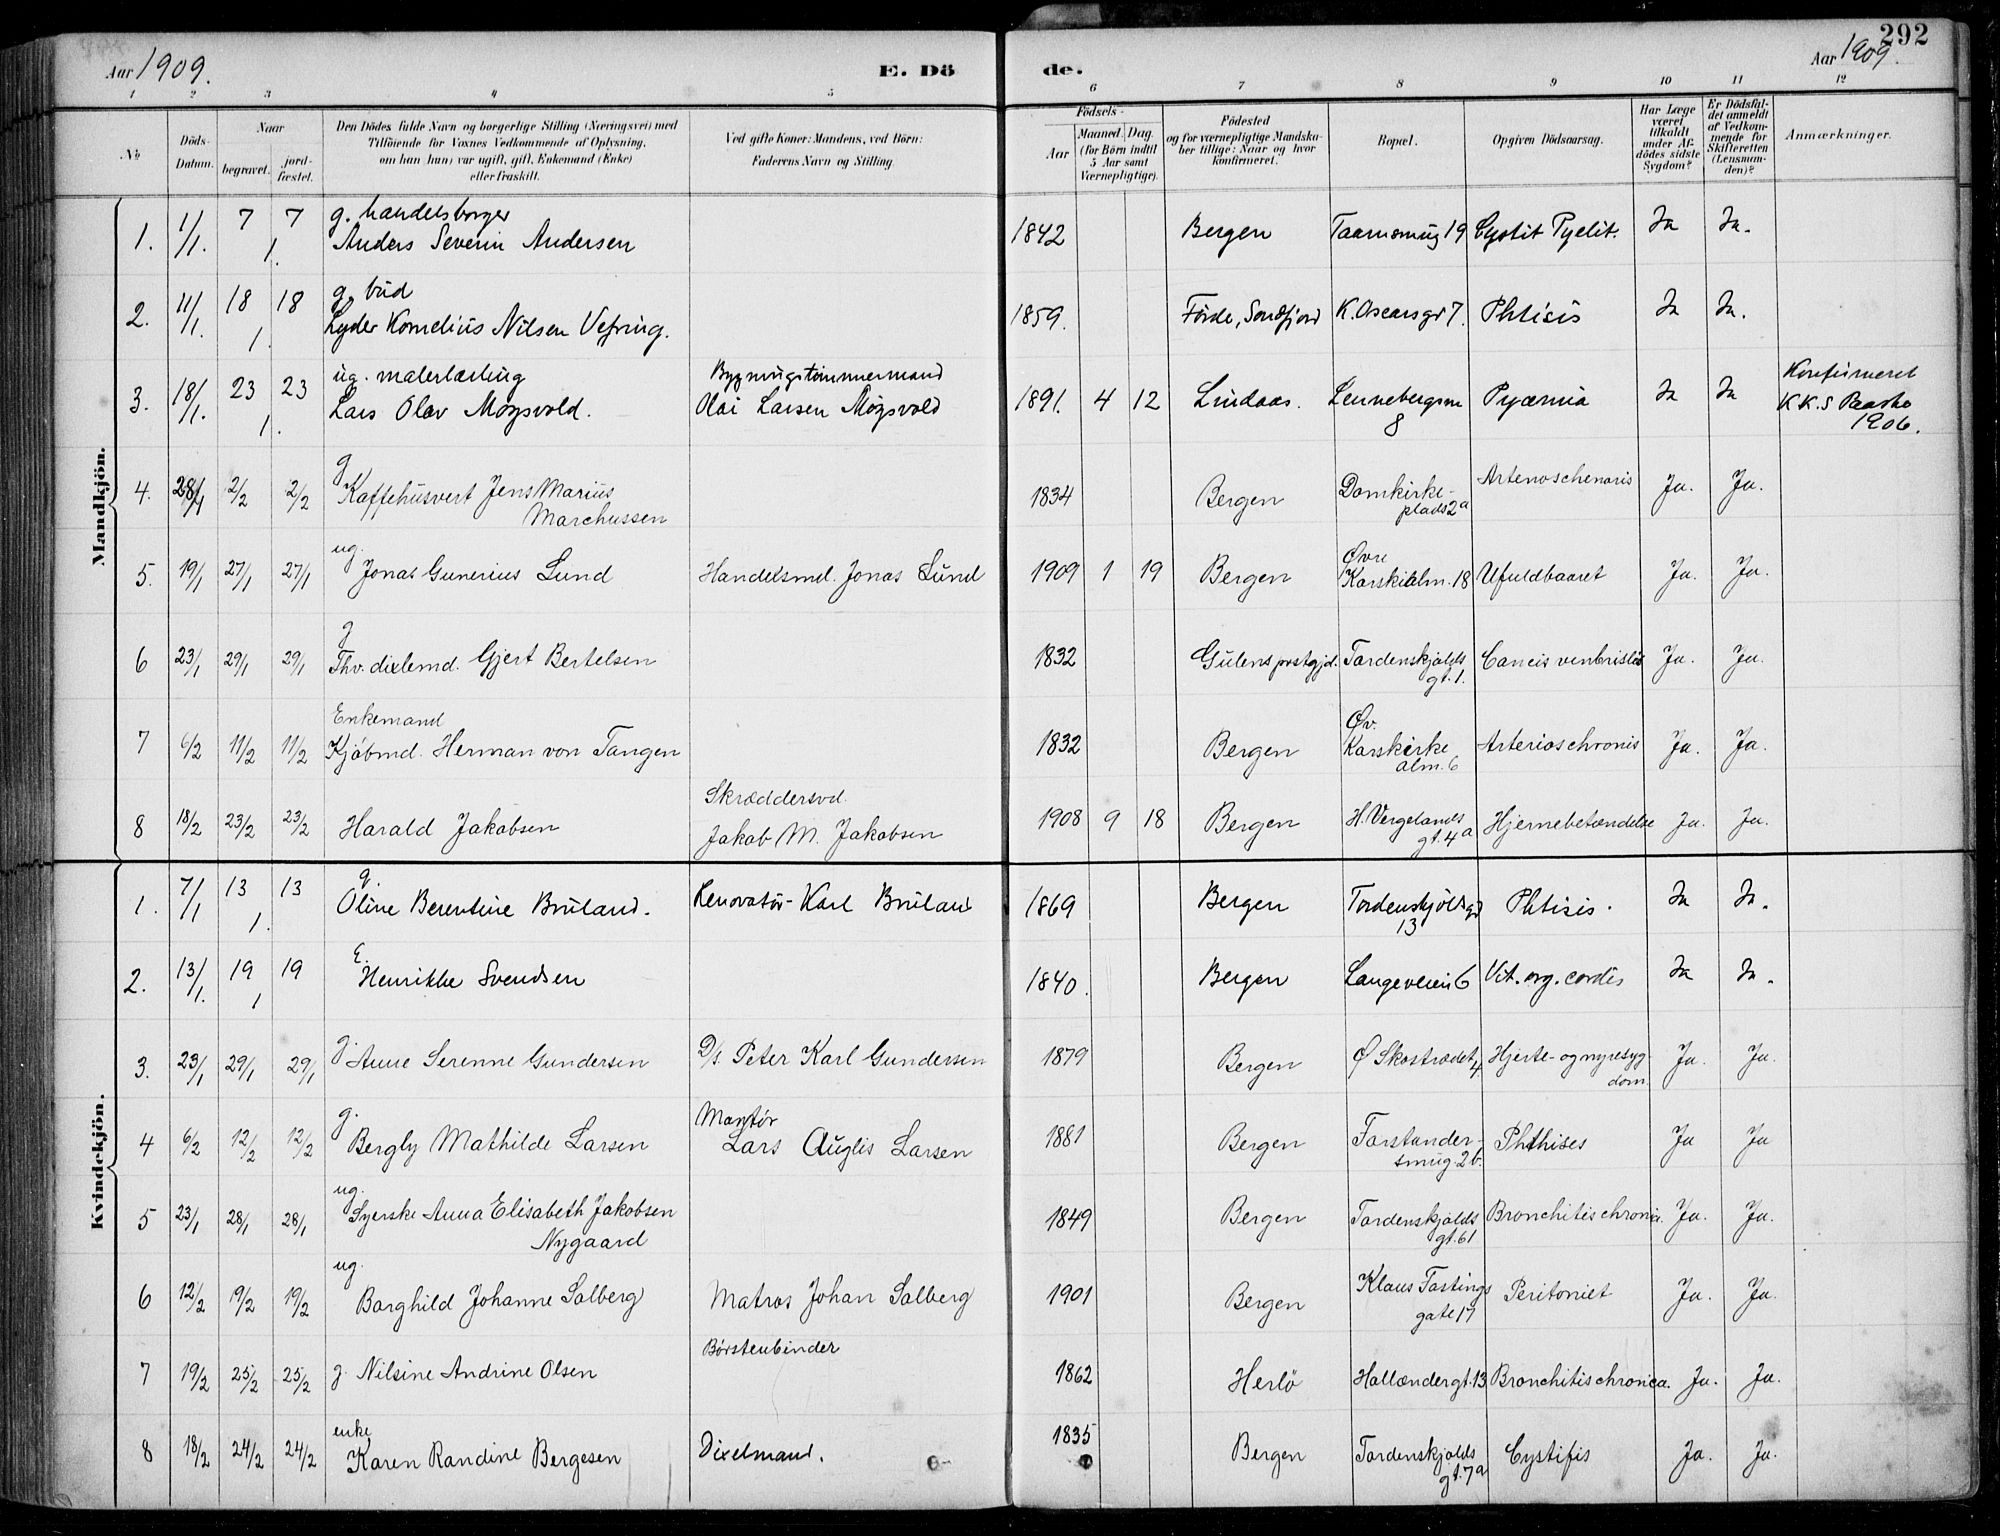 292
Aar 1909. E. Dö de. Aar 1909.
1 2 3 4 5 6 7 8 9 10 11 12
№
Döds-Datum.
Naar
begravet.
jord-fæstet.
Den Dödes fulde Navn og borgerlige Stilling (Næringsvei) med
Tilföiende for Voxnes Vedkommende af Oplysning,
om han (hun) var ugift, gift, Enkemand (Enke)
eller fraskilt.
Ved gifte Koner: Mandens, ved Börn:
Faderens Navn og Stilling.
Födsels-
Aar
Maaned. Dag.
(for Börn indtil
5 Aar samt
Værnepligtige).
Födested
og for værnepligtige Mandska-
ber tillige: Naar og hvor
konfirmeret.
Bopæl.
Opgiven Dödsaarsag.
Har Læge
været
tilkaldt
under Af-
dödes sidste
Sygdom?
Er Dödsfal-
det anmeldt
af Vedkom-
mende for
Skifteretten
(Lensman-
den)?
Anmærkninger.
Mandkjön.
1. 1/1. 7 7 1. g. handelsborger
Anders Severin Andersen 1842 Bergen Taarnsmug 19 Cystit Pyelit. Ja Ja.
2. 11/1. 18 18 1. g. bud
Lyder Kornelius Nilsen Vefring. 1859. Förde, Søndfjord K. Oscarsgt 7. Phtisis Ja Ja.
3. 18/1. 23 23 1. ug. malerlærling
Lars Olav Mogsvold. Bygningstømmermand
Olai Larsen Mogsvold 1891. 4 12 Lindaas. Lennebergsm
8 Pyæmia Ja Ja Konfirmeret
K.K. S Paaske
1906.
4. 28/1 2/2 2/2 g
Kaffehusvert Jens Marius
Marchussen 1834 Bergen Domkirke-
plads 2a Artenoschenoris Ja. Ja.
5. 19/1 27/1 27/1 ug.
Jonas Gunerius Lund Handelsmd. Jonas Lund 1909 1 19 Bergen Øvre
Korskialm. 18 Ufuldbaaret Ja. Ja.
6 23/1 29/1 29/1 g
Thv. dixlemd. Gjert Bertelsen 1832 Gulens prstgjd. Tordenskjolds
gt. 1. Cancis Ja. Ja.
7 6/2 11/2 11/2 Enkemand
Kjöbmd. Herman von Tangen 1832 Bergen Øv.
Korskirke
alm. 6 Arterioschronis Ja. Ja.
8 18/2 23/2 23/2 Harald Jakobsen Skræddersvd.
Jakob M. Jakobsen 1908 9 18 Bergen H. Vergelands
gt. 4a Hjernebetændelse Ja. Ja.
Kvindekjön.
1. 7/1 13 13 1. g.
Oline Berentine Bruland. Renovatør Karl Bruland 1869 Bergen Tordenskjöldsgd
13 Phtisis. Ja Ja.
2. 13/1. 19 19 1 E.
Henrikke Svendsen 1840. Bergen Langeveien 6 Vit. org. cordis Ja Ja.
3. 23/1 29/1 29/1 g. Anne Serenne Gundersen D/s Peter Karl Gundersen 1879 Bergen Ø Skostrædet 4 Hjerte- og nyresyg-
dom. Ja. Ja.
4 6/2 12/2 12/2 g.
Bergly Mathilde Larsen Montør
Lars Auglis Larsen 1881 Bergen Forstander-
smug. 2b. Phthises Ja Ja
5 23/1 28/1 28/1 ug.
Syerske Anna Elisabeth Jakobsen
Nygaard 1849 Bergen Tordenskjolds
gt. 61 Bronchitis chronica. Ja. Ja.
6 12/2 19/2 19/2 ug.
Borghild Johanne Solberg Matros Johan Solberg 1901 Bergen Klaus Fastings
gate 17 Peritoniet Ja. Ja.
7 19/2 25/2 25/2 g. Nilsine Andrine Olsen Børstenbinder 1862 Herlö Hollændergt. 13 Bronchitis chronica. Ja. Ja.
8 18/2 24/2 24/2 enke
Karen Randine Bergesen Dixelmand. 1835 Bergen Tordenskjolds
gt. 7a Cystifis Ja. Ja.